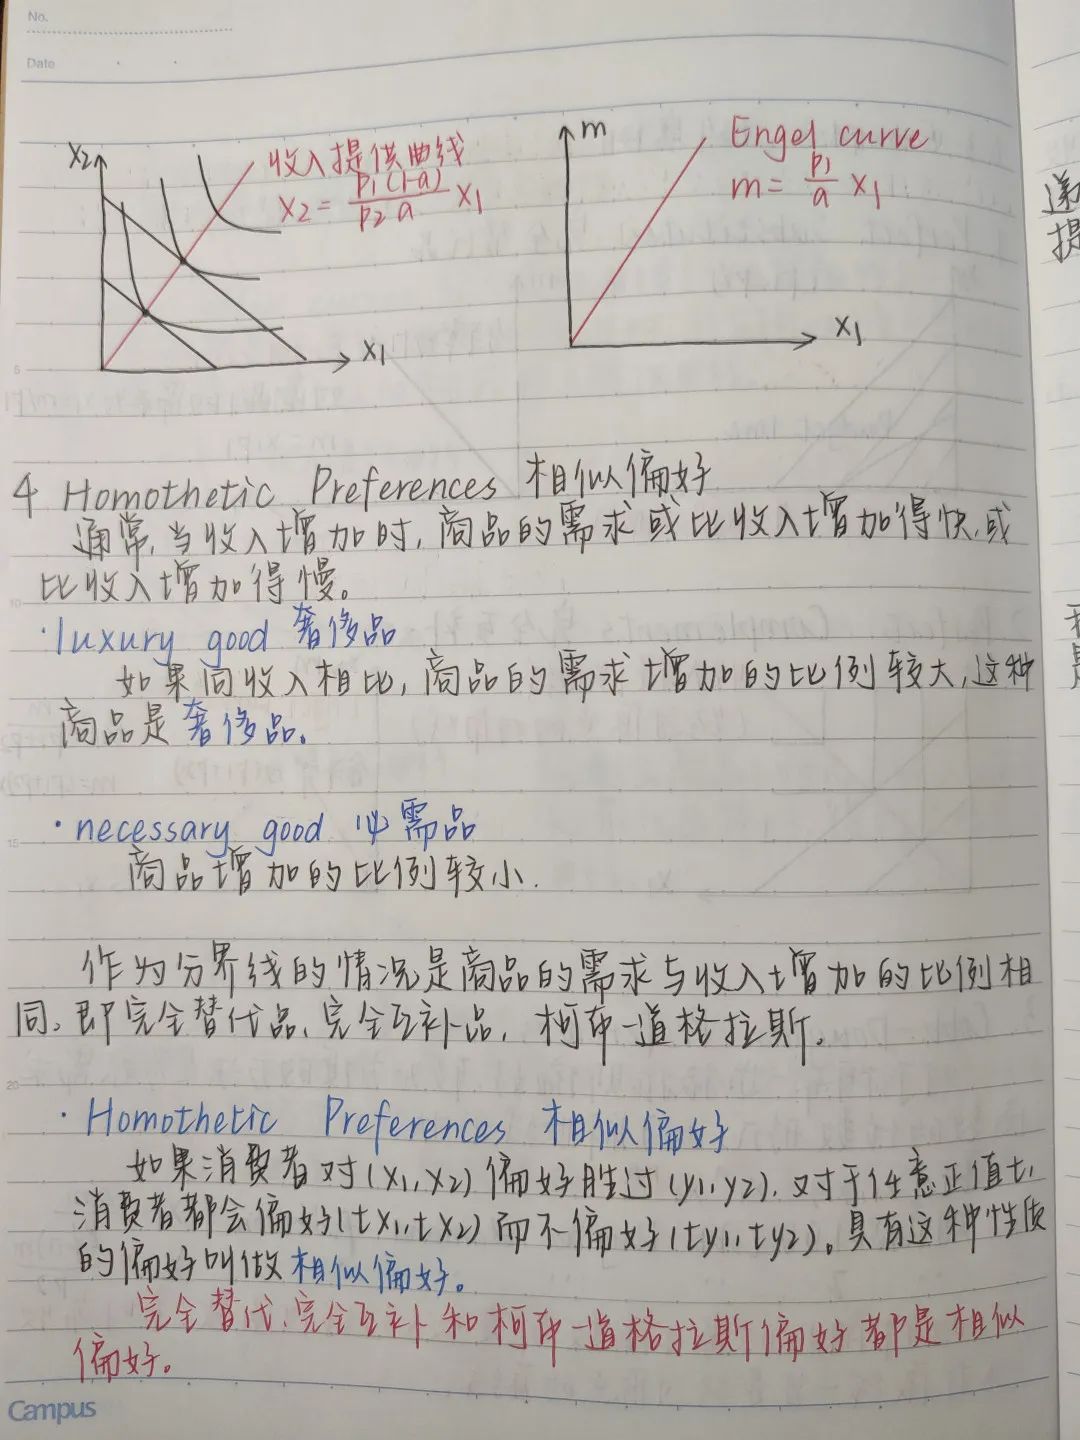 No.
Date
x2
收入提供曲线
x2 = p1(1-a)/p2 a x1
x1
m
Engel curve
m = p1/a x1
x1
5
4 Homothetic Preferences 相似偏好
通常,当收入增加时,商品的需求或比收入增加得快,或
比收入增加得慢。
10
·luxury good 奢侈品
如果同收入相比,商品的需求增加的比例较大,这种
商品是奢侈品。
·necessary good 必需品
15
商品增加的比例较小.
作为分界线的情况是商品的需求与收入增加的比例相
同。即完全替代品、完全互补品,柯布-道格拉斯。
20
·Homothetic Preferences 相似偏好
如果消费者对(x1,x2)偏好胜过(y1,y2),对于任意正值t,
消费者都会偏好(tx1,tx2)而不偏好(ty1,ty2)。具有这种性质
的偏好叫做相似偏好。
完全替代、完全互补和柯布-道格拉斯偏好都是相似
偏好。
Campus